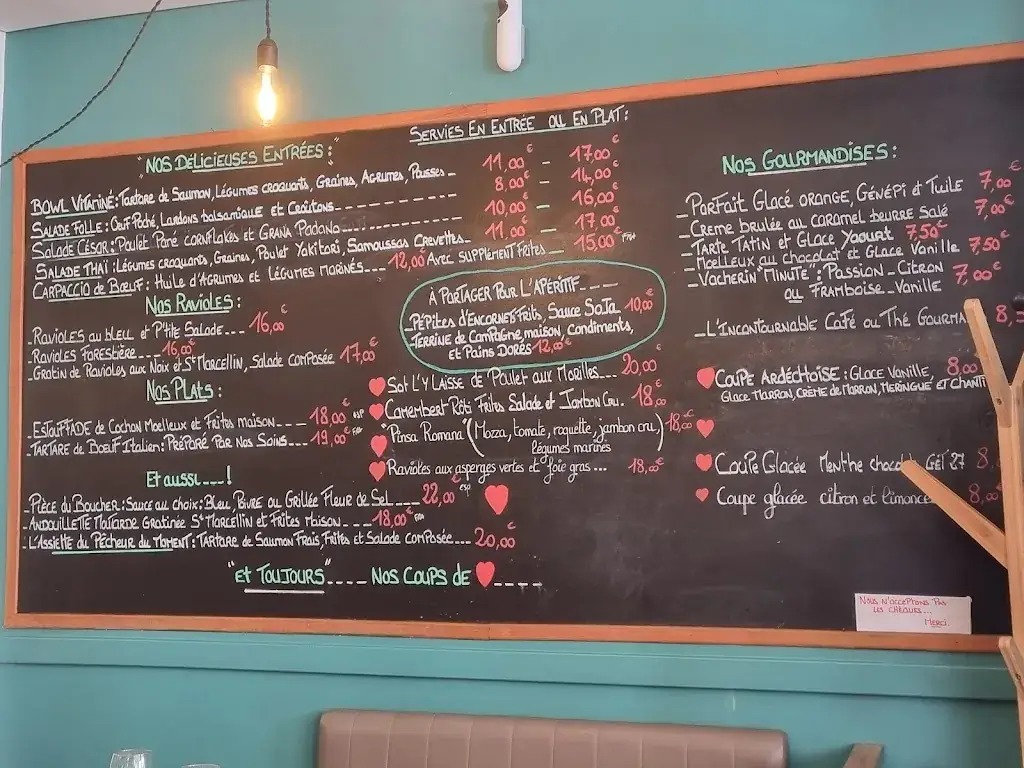 "NOS DÉLICIEUSES ENTRÉES:"
SERVIES EN ENTRÉE OU EN PLAT:
BOWL VITAMINÉ: Tartare de Saumon, Légumes croquants, Graines, Agrumes, Pousses _ 11,00€ - 17,00€
SALADE FOLLE: Œuf Poché Lardons balsamique et Croûtons _ _ _ 8,00€ - 14,00€
Salade César: Poulet Pané cornflakes et Grana Padano _ _ _ 10,00€ - 16,00€
SALADE THAÏ: Légumes croquants, Graines, Poulet Yakitori, Samoussas Crevettes _ 11,00€ - 17,00€
CARPACCIO de BŒUF: Huile d'Agrumes et Légumes marinés _ _ _ 12,00€ Avec SUPPLÉMENT Frites _ 15,00€
Nos Ravioles:
_ Ravioles au bleu et P'tite Salade _ _ _ 16,00€
_ Ravioles Forestière _ _ _ 16,00€
_ Gratin de Ravioles aux Noix et St Marcellin, Salade composée 17,00€
Nos Plats:
_ ESTOUFFADE de Cochon Moelleux et Frites maison _ _ _ 18,00€
_ TARTARE de Bœuf Italien: PRÉPARÉ PAR NOS SOINS _ _ _ 19,00€
Et aussi _ _ _ !
_ Pièce du Boucher: Sauce au choix: Bleu, Poivre ou Grillée Fleur de Sel _ _ _ 22,00€
_ ANDOUILLETTE Moutarde Gratinée St Marcellin et Frites Maison _ _ _ 18,00€
_ L'ASSIETTE du Pêcheur du Moment: Tartare de Saumon Frais, Frites et Salade composée _ _ _ 20,00€
"Et TOUJOURS" _ _ _ _ Nos Coups de ♥ _ _ _ _
À PARTAGER POUR L'APÉRITIF _ _ _ _
_ PÉPITES d'ENCORNETS Frits, Sauce SOJA 10,00€
_ TERRINE de CAMPAGNE, maison, CONDIMENTS,
et Pains Dorés 12,00€
♥ Sot L'y Laisse de Poulet aux Morilles _ _ _ 20,00
♥ Camembert Rôti Frites Salade et Jambon Cru. 18,00€
♥ "Pinsa Romana" (Mozza, tomate, roquette, jambon cru,) 18,00€
légumes marinés
♥ Ravioles aux asperges vertes et foie gras... 18,00€
Nos Gourmandises:
_ PARFAIT Glacé orange, Génépi et Tuile 7,00€
_ Creme brulée au caramel beurre Salé 7,00€
_ Tarte Tatin et Glace Yaourt 7,50€
_ Moelleux au chocolat et Glace Vanille 7,50€
_ Vacherin "Minute": Passion_Citron 7,00€
ou Framboise_Vanille
_ L'Incontournable Café ou Thé Gourma 8,
♥ Coupe Ardéchoise: Glace Vanille, 8,00
Glace Marron, Crème de Marron, Meringue et Chanti
♥
♥ Coupe Glacée Menthe chocolat GET 27 8,
♥ Coupe glacée citron et limonce 8,00
Nous n'acceptons pas
les chèques...
Merci.